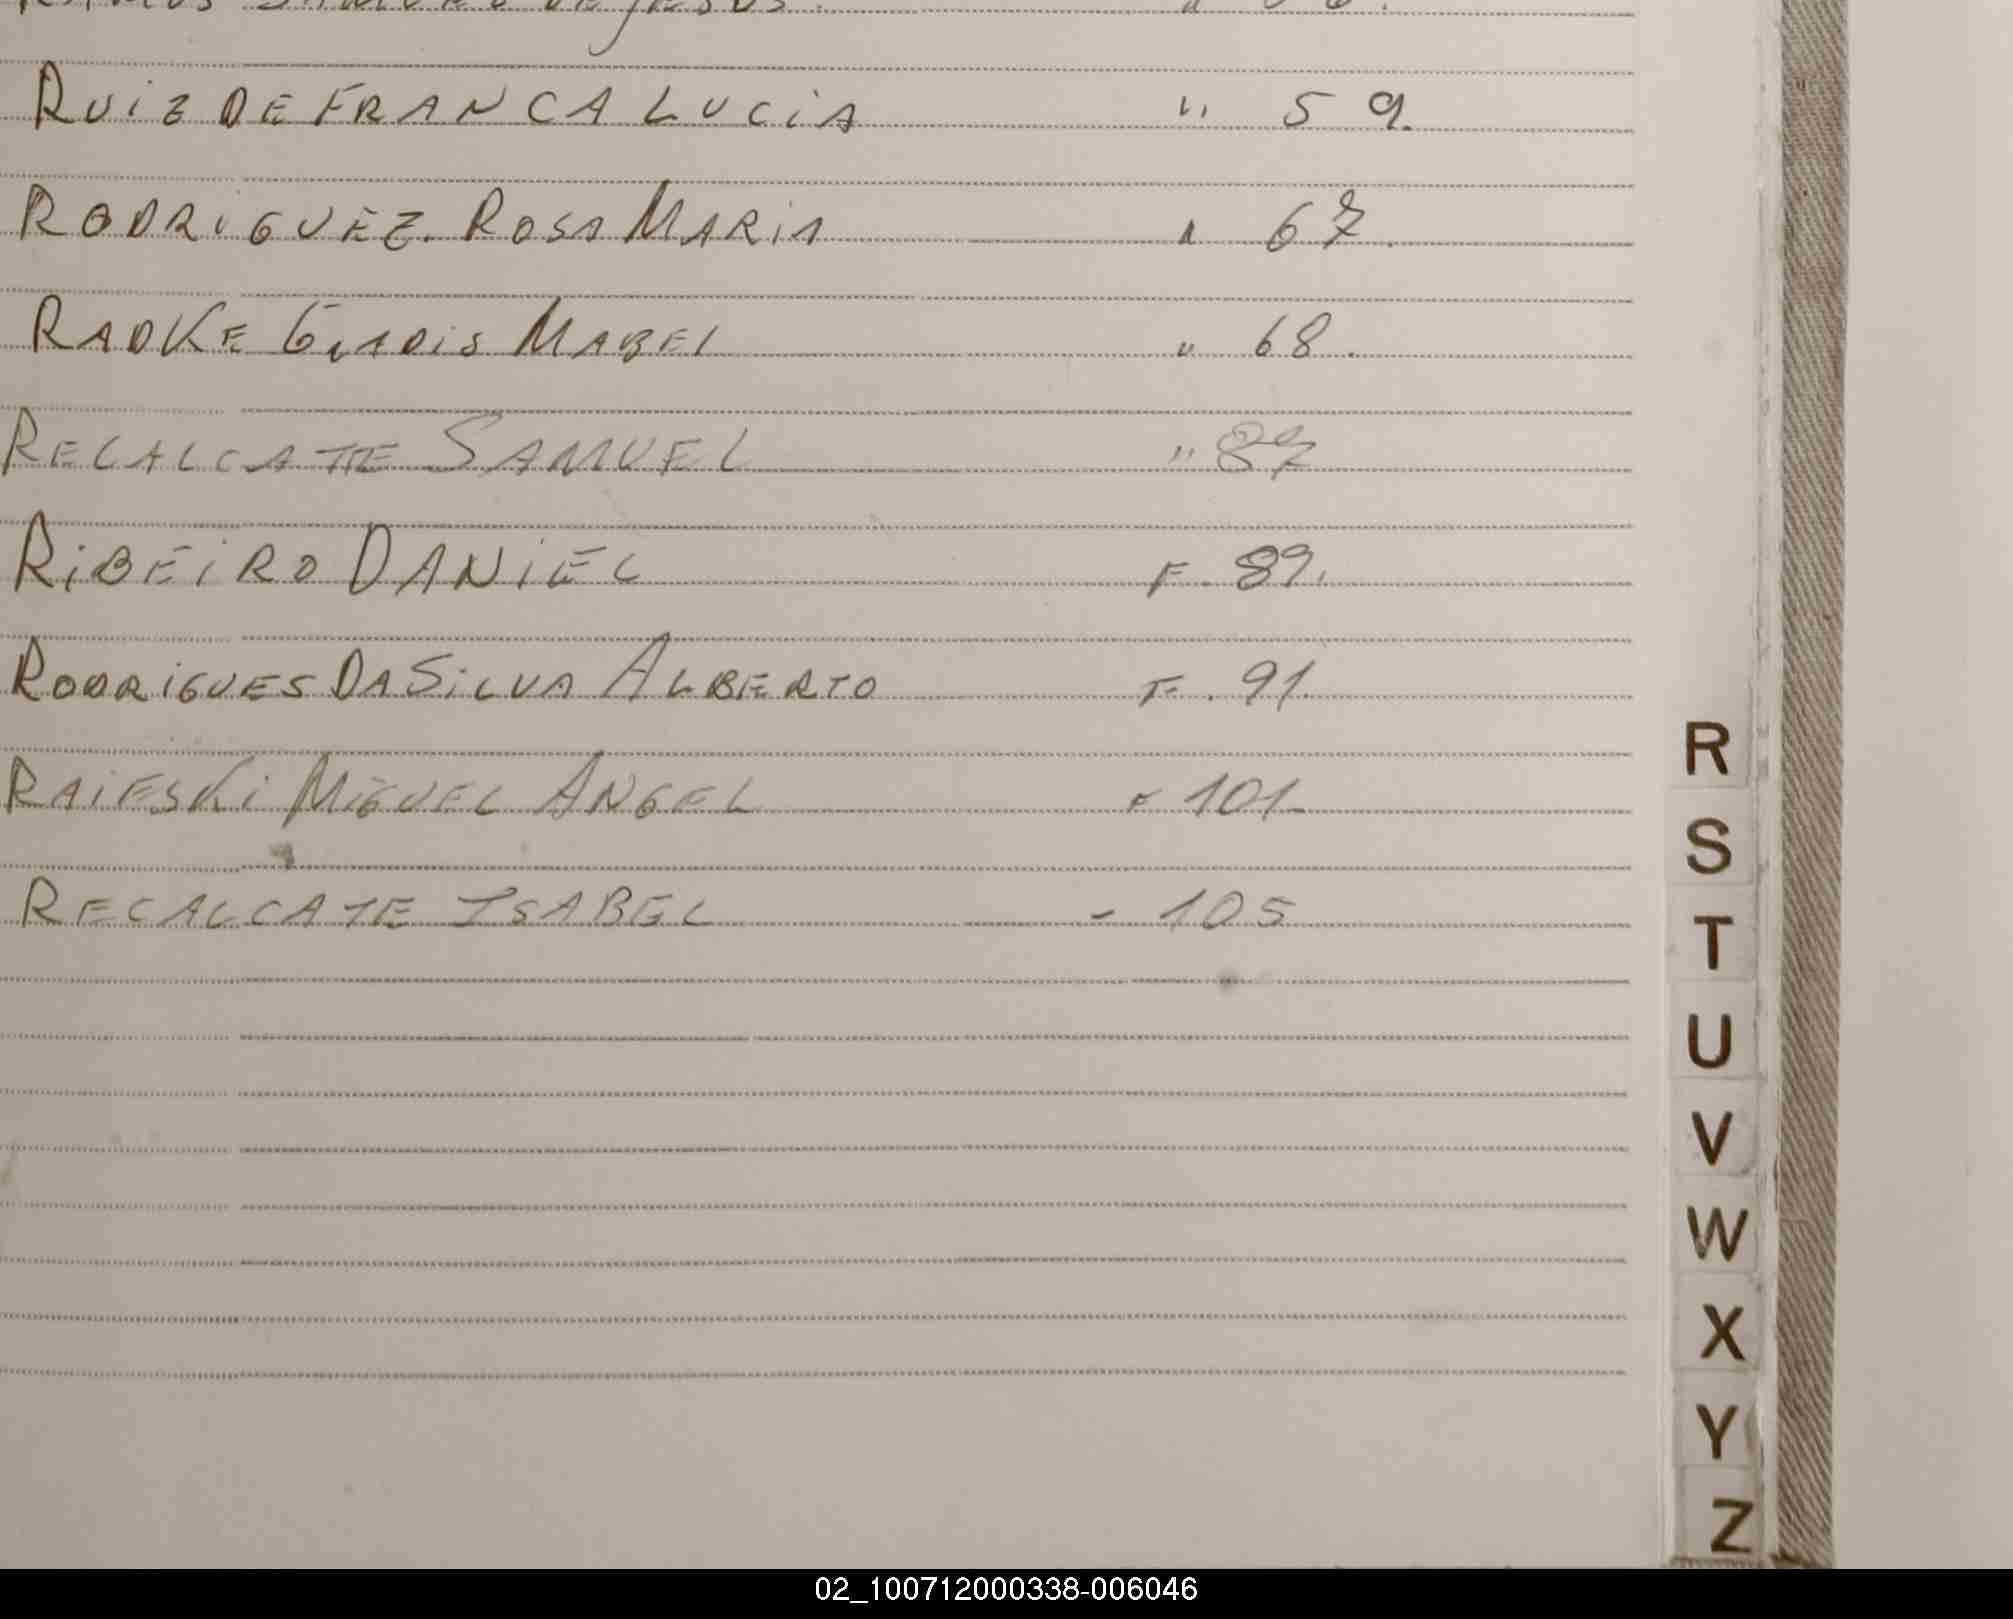 RUIZ DE FRANCA LUCIA " 59.
RODRIGUEZ. ROSA MARIA " 67.
RADKE GLADIS MABEL " 68.
RECALCATE SAMUEL " 87
RIBEIRO DANIEL F. 89.
RODRIGUES DA SILVA ALBERTO F. 91.
RAIESKI MIGUEL ANGEL F 101
RECALCATE ISABEL - 105
R
S
T
U
V
W
X
Y
Z
02_100712000338-006046